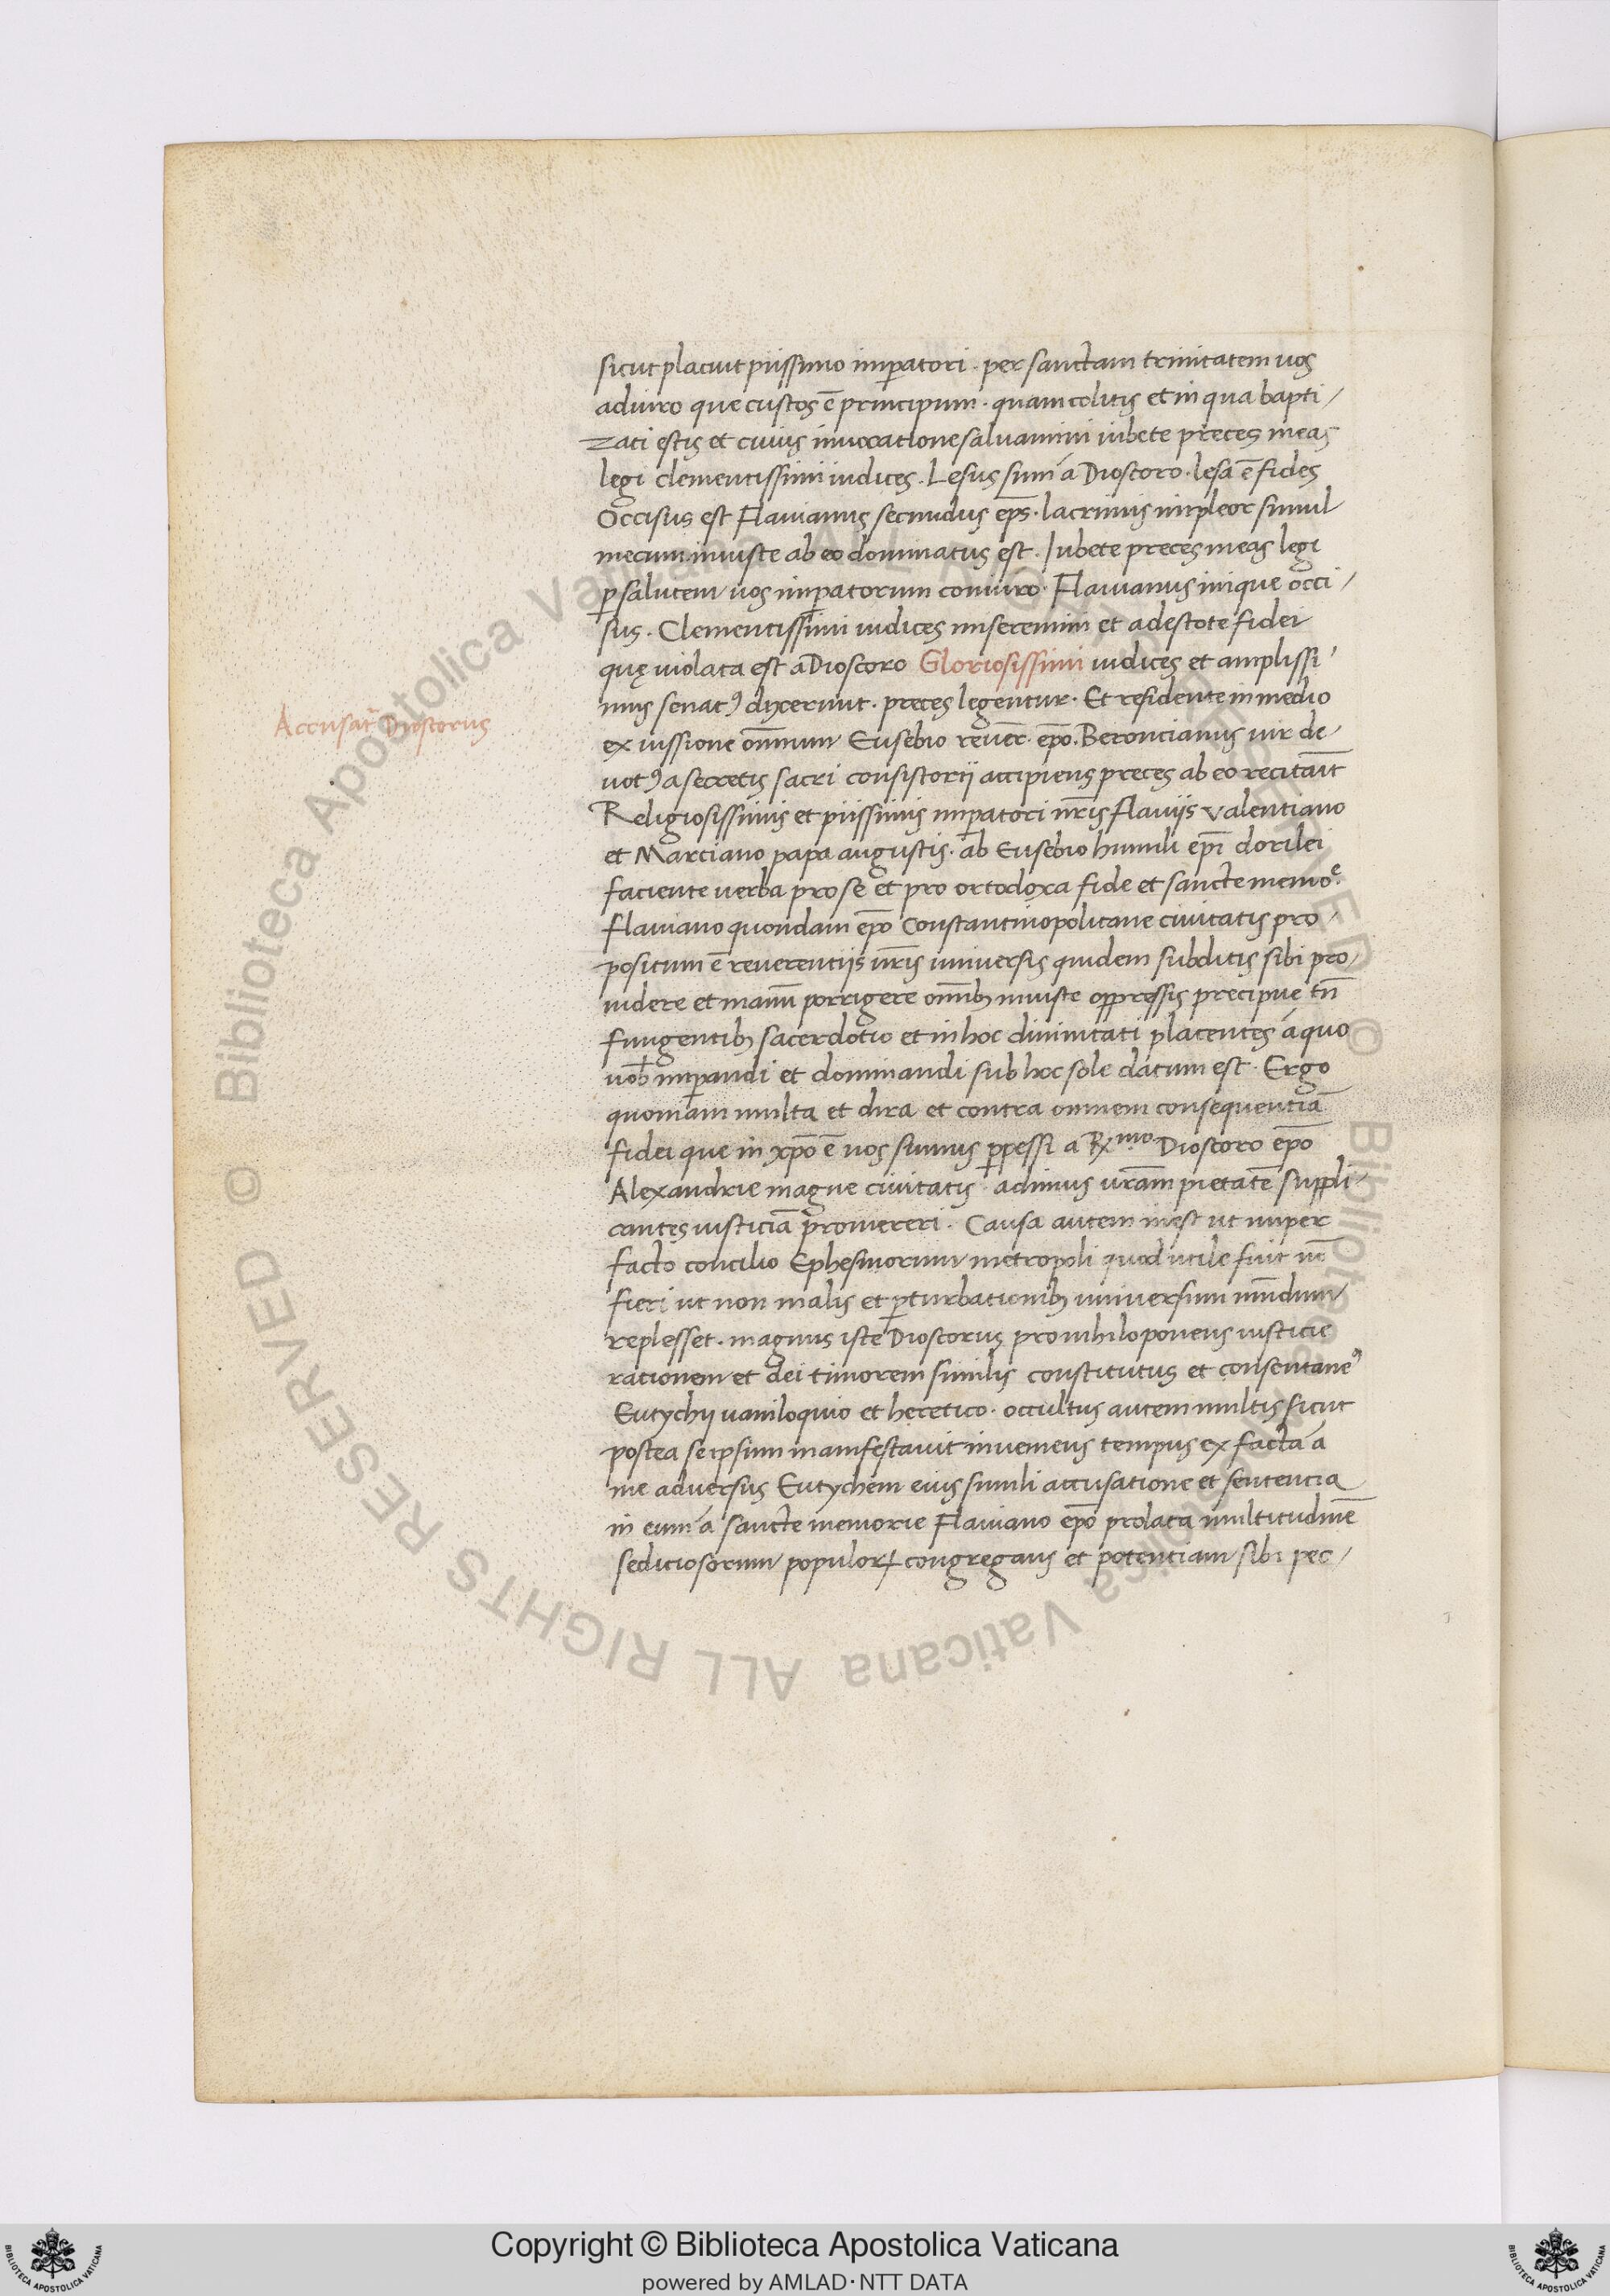 sicut placuit piissimo imp̱atori . per sanctam trinitatem uos
adiuro que custos ē principum · quam colitis et in qua bapti/
zati estis et cuius inuocatione saluamini iubete preces meas
legi clementissimi iudices . Lesus sum á Dioscoro · lesa ē fides
Occisus est Flauianus secundus ep̄s · lacrimis impleor simul
mecum iniuste ab eo dominatus est . Iubete preces meas legi
ꝑ salutem uos imꝑatorum coniuro · Flauianus inique occi/
sus . Clementissimi iudices miseremini et adestote fidei
quę uiolata est a Dioscoro Gloriosissimi iudices et amplissi/
Accusat̄ Dioscorus
mus senatꝰ dyxerunt · preces legentur · Et residente in medio
ex iussione om̄ium Eusebio reuer̄ · ep̄o . Beroncianus uir de/
uotꝰ a secretis sacri consistorij accipiens preces ab eo recitauit
Religiosissimis et piissimis imꝑatori nr̄is flauijs Valentiano
et Marciano papa augustis · ab Eusebio humili ep̄i dorilei
faciente uerba pro se et pro ortodoxa fide et sancte memoᵉ.
flauiano quondam ep̄o Constantinopolitane ciuitatis pro/
positum ē reuerentijs nr̄is uniuersis quidem subditis sibi pro/
uidere et manū porrigere om̄ibꝫ iniuste oppressis precipue tn̄
fungentibꝫ sacerdotio et in hoc diuinitati placentes á quo
uob̄ imꝑandi et dominandi sub hoc sole datum est · Ergo
quoniam multa et dira et contra omnem consequentiā
fidei que in xp̄o ē nos sumus ꝑpessi a Rx̱.ᵐᵒ Dioscoro ep̄o
Alexandrie magne ciuitatis · adimus ur̄am pietatē suppli/
cantes iusticiā promereri . Causa autem inest ut nuper
facto concilio Ephesinorum metropoli quod utile fuit nc̄
fieri ut non malis et ꝑturbationibꝫ uniuersum mūdum
replesset . magnus iste Dioscorus pro nihilo ponens iusticie
rationem et dei timorem similis constitutus et consentaneꝰ
Eutychij uaniloquio et heretico · occultus autem multis sicut
postea se ipsum manifestauit inueniens tempus ex facta á
me aduersus Eutychem eius simili accusatione et sententia
in eum á sancte memorie Flauiano ep̄o prolata multitudinē
sediciosorum populoꝝ congregans et potentiam sibi pec/
Copyright © Biblioteca Apostolica Vaticana
powered by AMLAD·NTT DATA
© Biblioteca Apostolica Vaticana ALL RIGHTS RESERVED
BIBLIOTECA APOSTOLICA VATICANA
BIBLIOTECA APOSTOLICA VATICANA